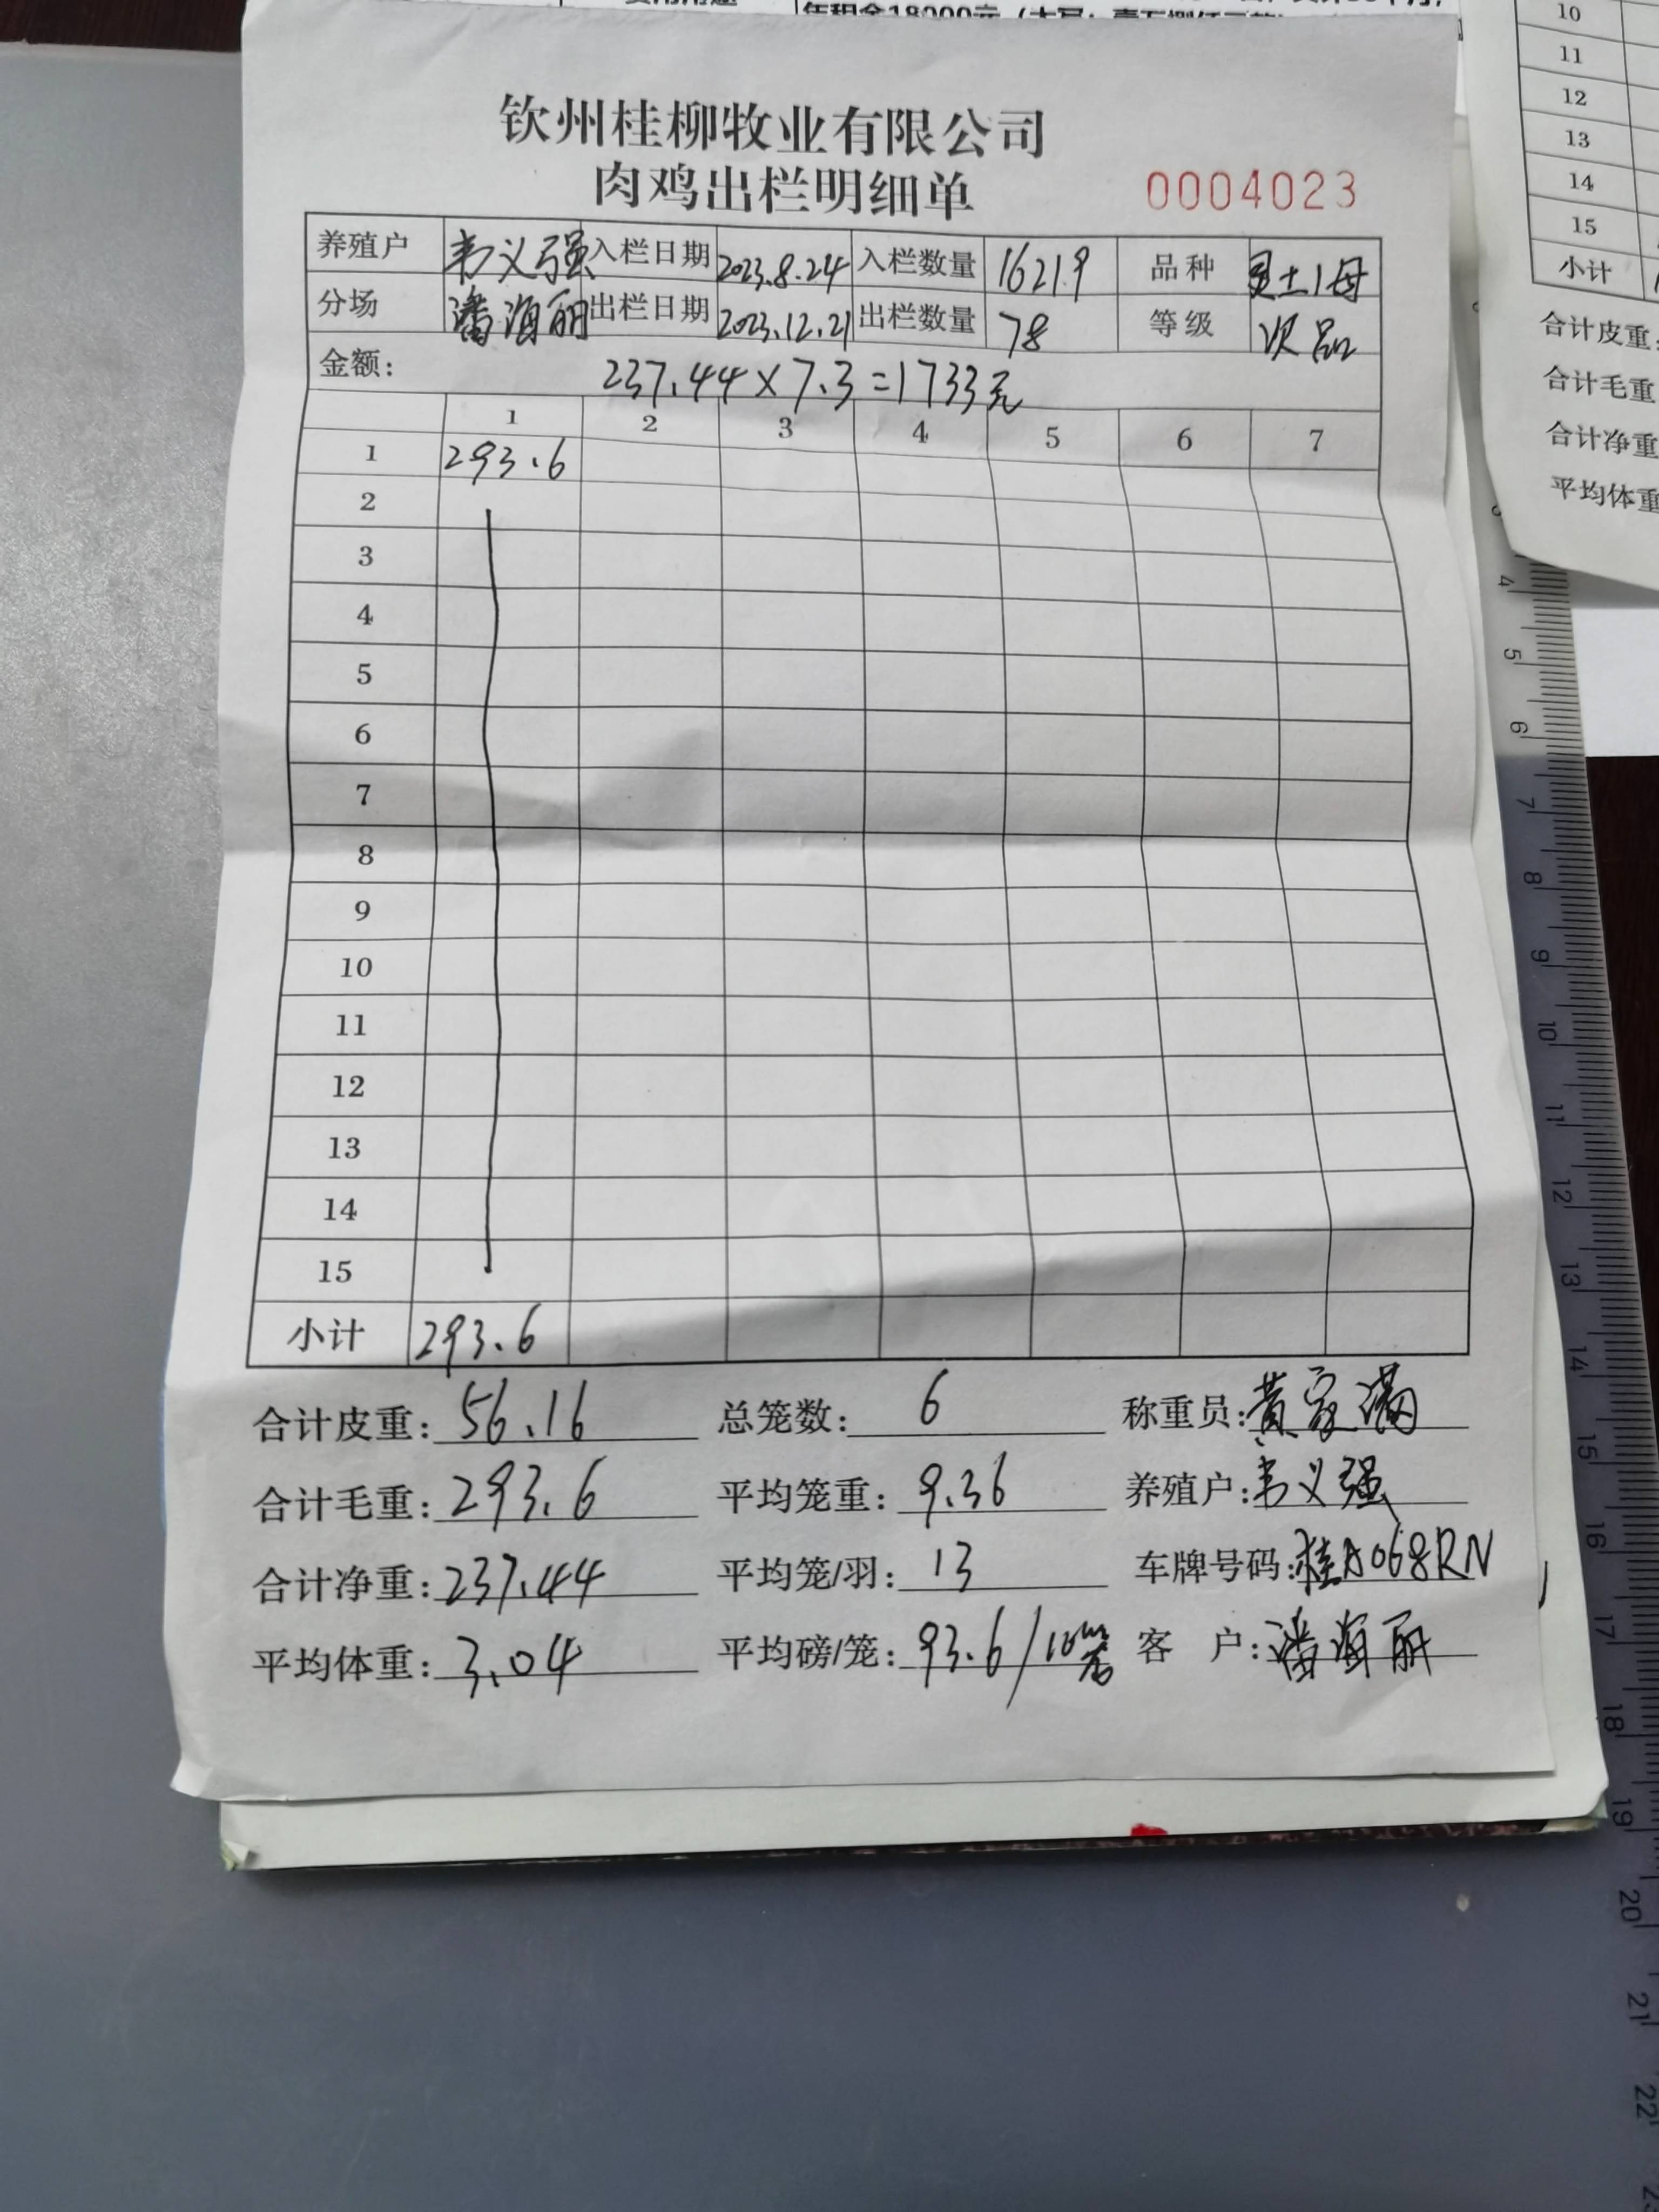 年租金18000元
钦州桂柳牧业有限公司
肉鸡出栏明细单 0004023
养殖户 韦义强 入栏日期 2023.8.24 入栏数量 16219 品种 土1母
分场 潘海丽 出栏日期 2023.12.21 出栏数量 78 等级 次品
金额: 237.44×7.3=1733元
1 2 3 4 5 6 7
1 293.6
2
3
4
5
6
7
8
9
10
11
12
13
14
15
小计 293.6
合计皮重: 56.16 总笼数: 6 称重员: 黄家满
合计毛重: 293.6 平均笼重: 9.36 养殖户: 韦义强
合计净重: 237.44 平均笼/羽: 13 车牌号码: 桂A068RN
平均体重: 3.04 平均磅/笼: 93.6/10笼 客 户: 潘海丽
10
11
12
13
14
15
小计
合计皮重:
合计毛重
合计净重
平均体重
4
5
6
7
8
9
10
11
12
13
14
15
16
17
18
19
20
21
22